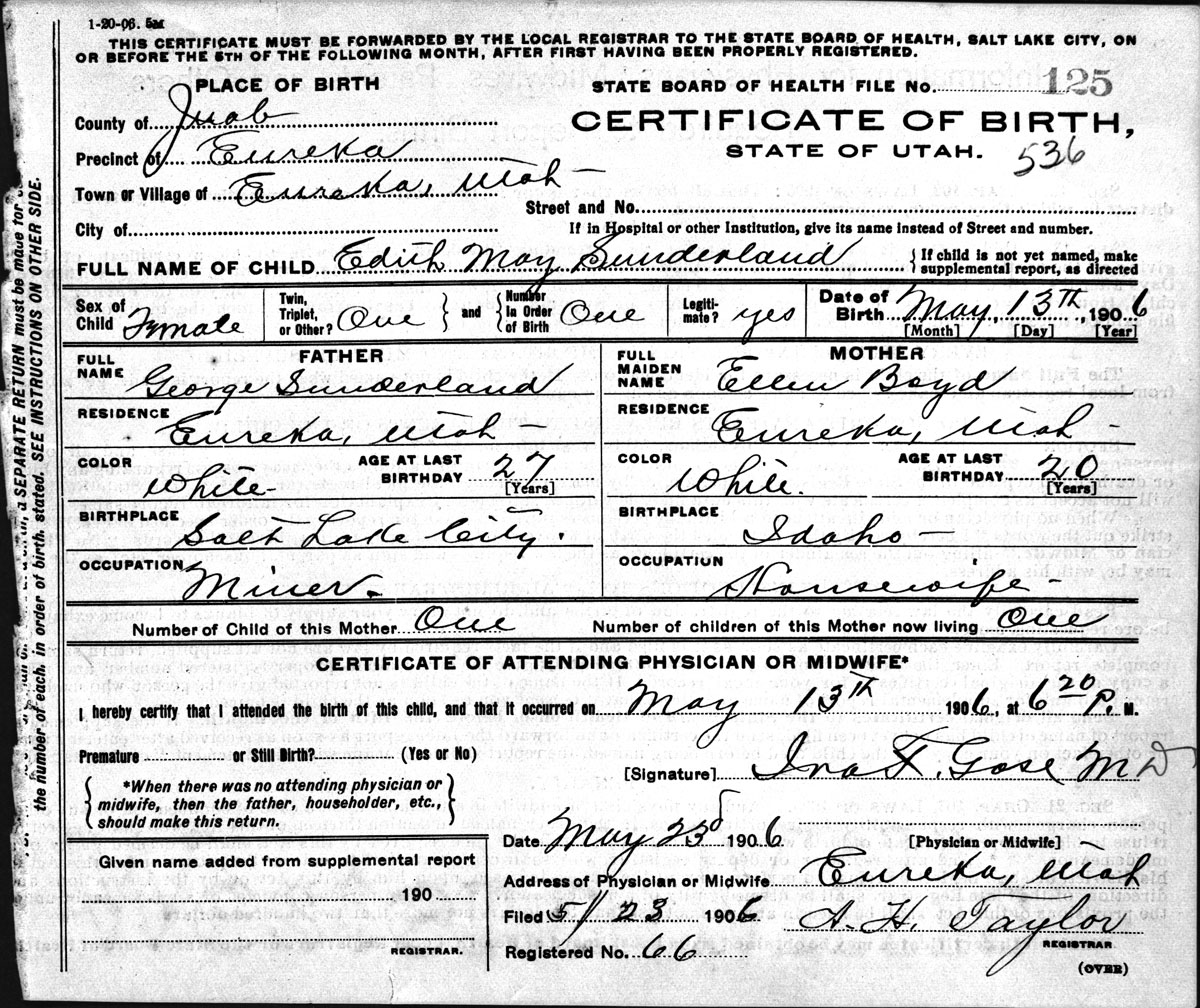 1-20-06. 5M
THIS CERTIFICATE MUST BE FORWARDED BY THE LOCAL REGISTRAR TO THE STATE BOARD OF HEALTH, SALT LAKE CITY, ON
OR BEFORE THE 5TH OF THE FOLLOWING MONTH, AFTER FIRST HAVING BEEN PROPERLY REGISTERED.
PLACE OF BIRTH
STATE BOARD OF HEALTH FILE NO. 125
County of Juab
CERTIFICATE OF BIRTH,
Precinct of Eureka
STATE OF UTAH. 536
Town or Village of Eureka, Utah
Street and No.
City of
If in Hospital or other Institution, give its name instead of Street and number.
FULL NAME OF CHILD Edith May Sunderland { If child is not yet named, make
supplemental report, as directed
Sex of Child Female
Twin, Triplet, or Other? One
and
Number in Order of Birth One
Legitimate? yes
Date of Birth May, 13TH, 1906
[Month] [Day] [Year]
FATHER
FULL NAME George Sunderland
RESIDENCE Eureka, Utah
COLOR White AGE AT LAST BIRTHDAY 27 [Years]
BIRTHPLACE Salt Lake City.
OCCUPATION Miner.
MOTHER
FULL MAIDEN NAME Ellen Boyd
RESIDENCE Eureka, Utah
COLOR White. AGE AT LAST BIRTHDAY 20 [Years]
BIRTHPLACE Idaho
OCCUPATION Housewife
Number of Child of this Mother One Number of children of this Mother now living One
CERTIFICATE OF ATTENDING PHYSICIAN OR MIDWIFE*
I hereby certify that I attended the birth of this child, and that it occurred on May 13TH 1906, at 6 20 P. M.
Premature or Still Birth? (Yes or No)
[Signature] Ira F. Gose MD
*When there was no attending physician or
midwife, then the father, householder, etc.,
should make this return.
Date May 23 1906 [Physician or Midwife]
Given name added from supplemental report
190
REGISTRAR.
Address of Physician or Midwife Eureka, Utah
Filed 5/23 1906 A. H. Taylor
REGISTRAR.
Registered No. 66
(OVER)
a SEPARATE RETURN must be made for
the number of each, in order of birth, stated. SEE INSTRUCTIONS ON OTHER SIDE.